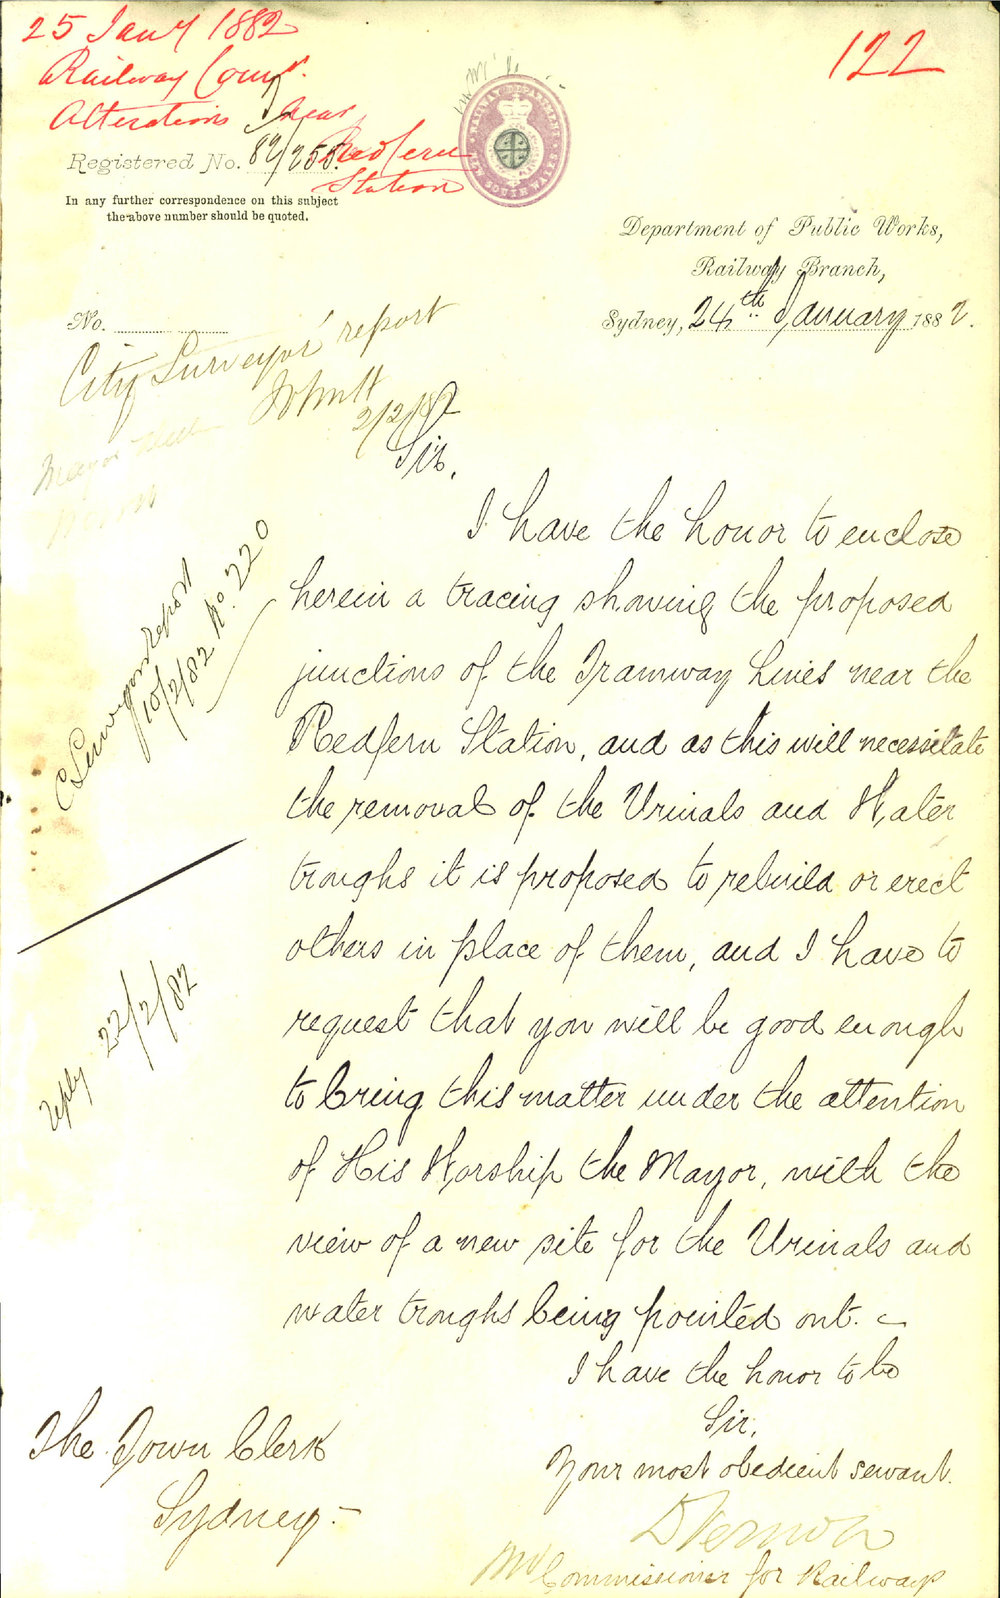 25 Jany 1882
122
Railway Comr.
Alterations near
Redfern
Station
Registered No. 82/255.
In any further correspondence on this subject
the above number should be quoted.
RAILWAY DEPARTMENT
NEW SOUTH WALES
Department of Public Works,
Railway Branch,
Sydney, 24th January 1882.
No.
City Surveyor report
2/2/82
Mayor
Sir,
I have the honor to enclose
herein a tracing showing the proposed
junctions of the Tramway Lines near the
Redfern Station, and as this will necessitate
the removal of the Urinals and Water
troughs it is proposed to rebuild or erect
others in place of them, and I have to
request that you will be good enough
to bring this matter under the attention
of His Worship the Mayor, with the
view of a new site for the Urinals and
water troughs being pointed out. –
C Surveyors Report
10/2/82 No. 220
reply 22/2/82
I have the honor to be
Sir,
Your most obedient servant.
The Town Clerk
Sydney –
DVernon
Commissioner for Railways